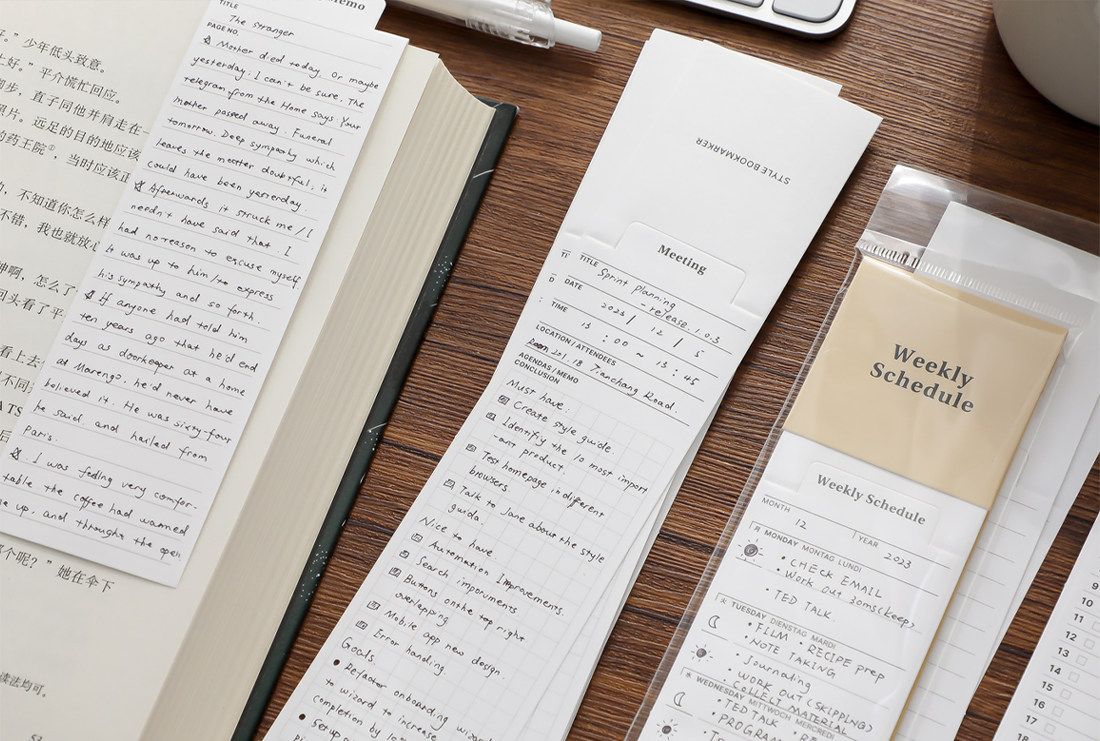 少年低头致意。
平介慌忙回应。
直子同他并肩走在
照片。远足的目的地应该
的药王院①，当时应该正
不知道你怎么样
不错，我也就放心
怎么了
回头看了平
看上去
不同
她在伞下
读法均可。
Memo
TITLE
The stranger
PAGE NO.
Mother died today. Or maybe
yesterday. I can't be sure. The
telegram from the Home says Your
mother passed away. Funeral
tomorrow. Deep sympathy which
leaves the matter doubtful; is
could have been yesterday
Afterwards it struck me/I
needn't have said that I
had no reason to excuse myself
it was up to him/to express
his sympathy and so forth.
If anyone had told him
ten years ago that he'd end
days as doorkeeper at a home
at Marengo, he'd never have
believed it. He was sixty-four
he said, and hailed from
Paris.
I was feeling very comfor-
table the coffee had warmed
me up, and throughs the open
STYLE BOOKMARKER
Meeting
TITLE
Sprint Planning
- release 1.0.3
DATE
2023 / 12 / 5
TIME
13 : 00 ~ 13 : 45
LOCATION / ATTENDEES
Room 201, 18 Tianchang Road.
AGENDAS / MEMO
CONCLUSION
Must have:
Create style guide
Identifiy the 10 most import
-ant product.
Test homepage in different
browsers.
Talk to Jane about the style
guida.
Nice to have
Automation Improvements.
Search imporuments
Buttons on the top right
overlapping
Mobile app new design.
Error handing.
Goals
Refactor onboarding
to wizard to increase
completion by
Setup
Weekly
Schedule
Weekly Schedule
MONTH 12 YEAR 2023
MONDAY MONTAG LUNDI
• CHECK EMAIL
• Work out 30ms(keep)
• TED TALK
TUESDAY DIENSTAG MARDI
• FILM • RECIPE prep
• NOTE TAKING
• Journating
• WORK OUT (SKIPPING)
• COLLECT MATERIAL
WEDNESDAY MITTWOCH MERCREDI
• TED TALK
• PROGRAM
9
10
11
12
13
14
15
16
17
18